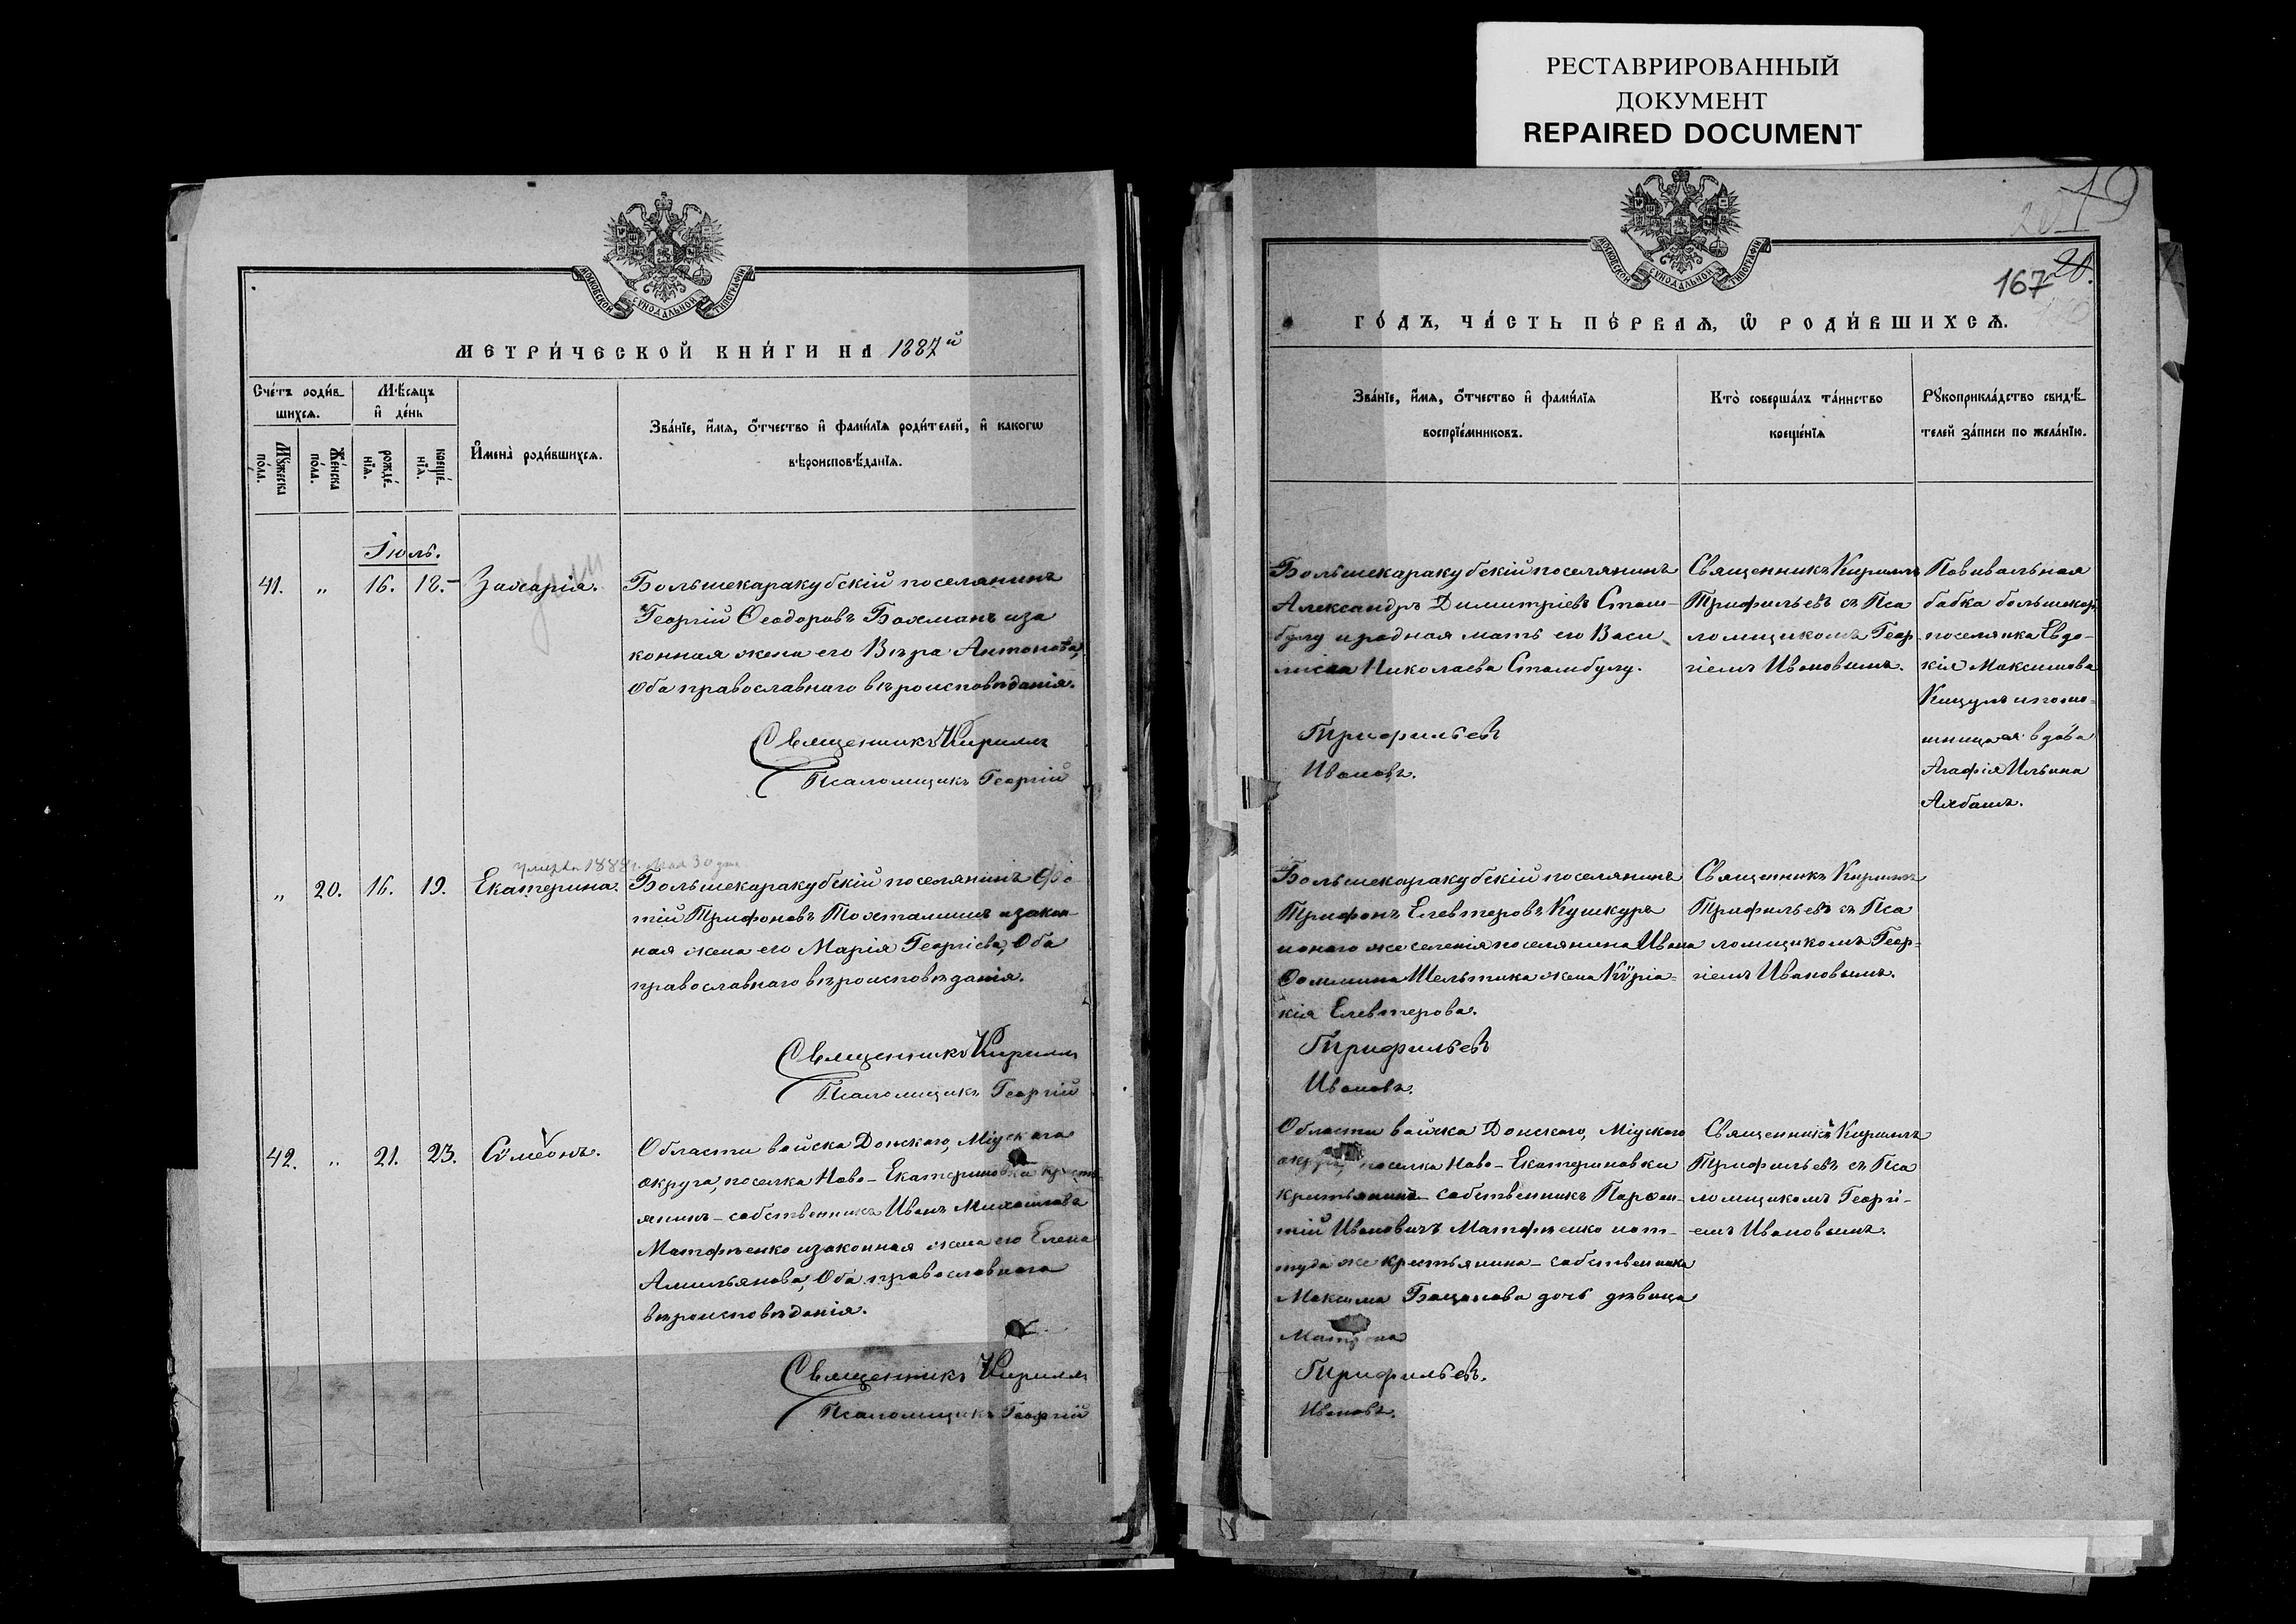 РЕСТАВРИРОВАННЫЙ
ДОКУМЕНТ
REPAIRED DOCUMENT
МОСКОВСКОЙ СУНОДАЛЬНОЙ ТИПОГРАФІИ
МЕТРИ́ЧЕСКОЙ КНИ́ГИ НА 1887й
Сче́тъ роди́в-
шихсѧ.
Мꙋ́жеска
по́ла.
Же́нска
по́ла.
Мѣ́сѧцъ
и҆ де́нь
рожде́-
нїѧ.
креще́-
нїѧ.
И҆мена̀ роди́вшихсѧ.
Зва́нїе, и҆́мѧ, ѻ҆́тчество и҆ фами́лїѧ роди́телей, и҆ какогѡ
вѣроисповѣ́данїѧ.
Іюль.
41. " 16. 18. Захарія.
Большекаракубскій поселянинъ
Георгій Ѳеодоровъ Бахманъ и за
конная жена его Вѣра Антонова,
оба православнаго вѣроисповѣданія.
Священникъ Кириллъ
Псаломщикъ Георгій
умерла 1888 г. мая 30 дня
" 20. 16. 19. Екатерина.
Большекаракубскій поселянинъ Фо
тій Трифоновъ Тохталишъ и закон
ная жена его Марія Георгіева, оба
православнаго вѣроисповѣданія.
Священникъ Кириллъ
Псаломщикъ Георгій
42. " 21. 23. Сѵмеонъ.
Области войска Донскаго, Міускаго
округа, поселка Ново-Екатериновки крестъ
янинъ-собственникъ Иванъ Михайловъ
Матфѣенко и законная жена его Елена
Амильянова, оба православнаго
вѣроисповѣданія.
Священникъ Кириллъ
Псаломщикъ Георгій
19
20
167
20.
МОСКОВСКОЙ СУНОДАЛЬНОЙ ТИПОГРАФІИ
ГО́ДЪ, ЧА́СТЬ ПЕ́РВАѦ, Ѡ҆ РОДИ́ВШИХСѦ.
Зва́нїе, и҆́мѧ, ѻ҆́тчество и҆ фами́лїѧ
воспрїе́мниковъ.
Кто̀ соверша́лъ та́инство
креще́нїѧ
Рꙋкоприкла́дство свидѣ́-
телей за́писи по жела́нїю.
Большекаракубскій поселянинъ
Александръ Димитріевъ Стам-
булу и родная мать его Васи
лисса Николаева Стамбулу.
Трифильевъ
Ивановъ.
Священникъ Кириллъ
Трифильевъ съ Пса
ломщикомъ Геор
гіемъ Ивановымъ.
Повивальная
бабка большекар.
поселянка Евдо-
кія Максимова
Кицулъ и помо-
щница ея вдова
Агафія Ильина
Ахбашъ.
Большекаракубскій поселянинъ
Трифонъ Елевтеровъ Кушкуръ
и онаго же селенія поселянина Ивана
Фоминина Шельтика жена Кѵріа-
кія Елевтерова.
Трифильевъ
Ивановъ.
Священникъ Кириллъ
Трифильевъ съ Пса
ломщикомъ Геор-
гіемъ Ивановымъ.
Области войска Донскаго, Міускаго
округа, поселка Ново-Екатериновки
крестьянинъ-собственникъ Парѳен-
тій Ивановичъ Матфѣенко и от-
туда же крестьянина-собственника
Максима Бацанова дочь дѣвица
Матрона
Трифильевъ.
Ивановъ.
Священникъ Кириллъ
Трифильевъ съ Пса
ломщикомъ Георгі-
емъ Ивановымъ.